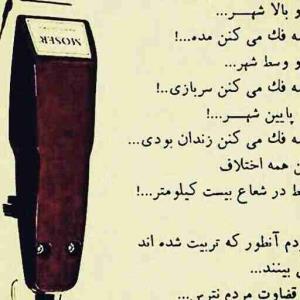 MOSER
و بالا شهـــر...
ـه فك می کنن مده...!
و وسط شهر...
ـه فك می کنن سربازی..!
پایین شهـــر...!
ـه فك می کنن زندان بودی...
ن همه اختلاف
ط در شعاع بیست کیلومتر...!
دم آنطور که تربیت شده اند
ی بینند...
قضاوت مردم نترس...